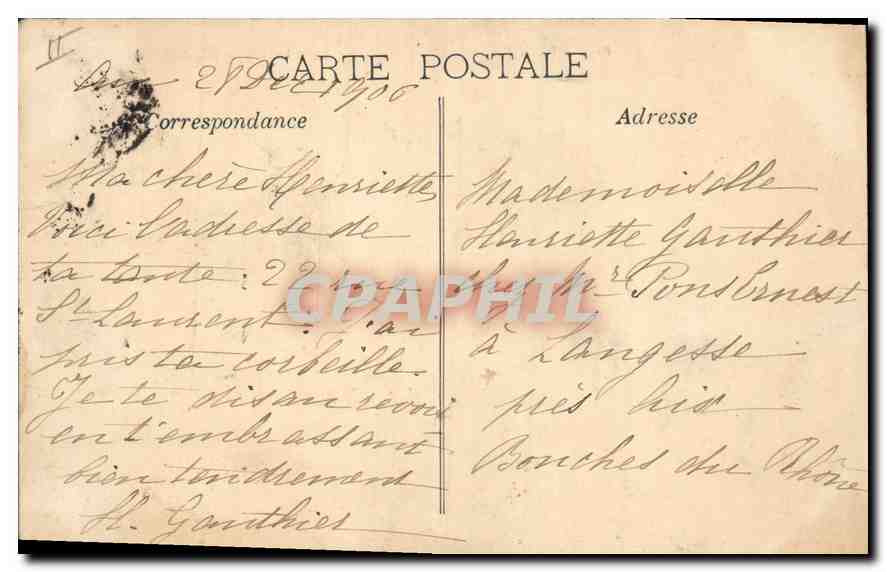 II
CARTE POSTALE
28 Dec 1906
Correspondance
Ma chère Henriette
Voici l'adresse de
ta tante : 22 rue
St Laurent. J'ai
pris ta corbeille.
Je te dis au revoir
en t'embrassant
bien tendrement
H. Gauthier
Adresse
Mademoiselle
Henriette Gauthier
chez Mr Pons Ernest
à Langesse
près Aix
Bouches du Rhône
CPAPHIL